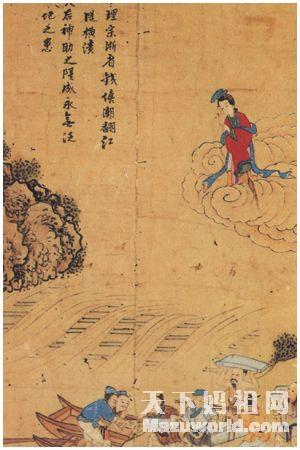 理宗浙省錢塘潮翻江
隄橫潰
后神助之隄咸永無泛
之患
天下妈祖网
Mazuworld.com